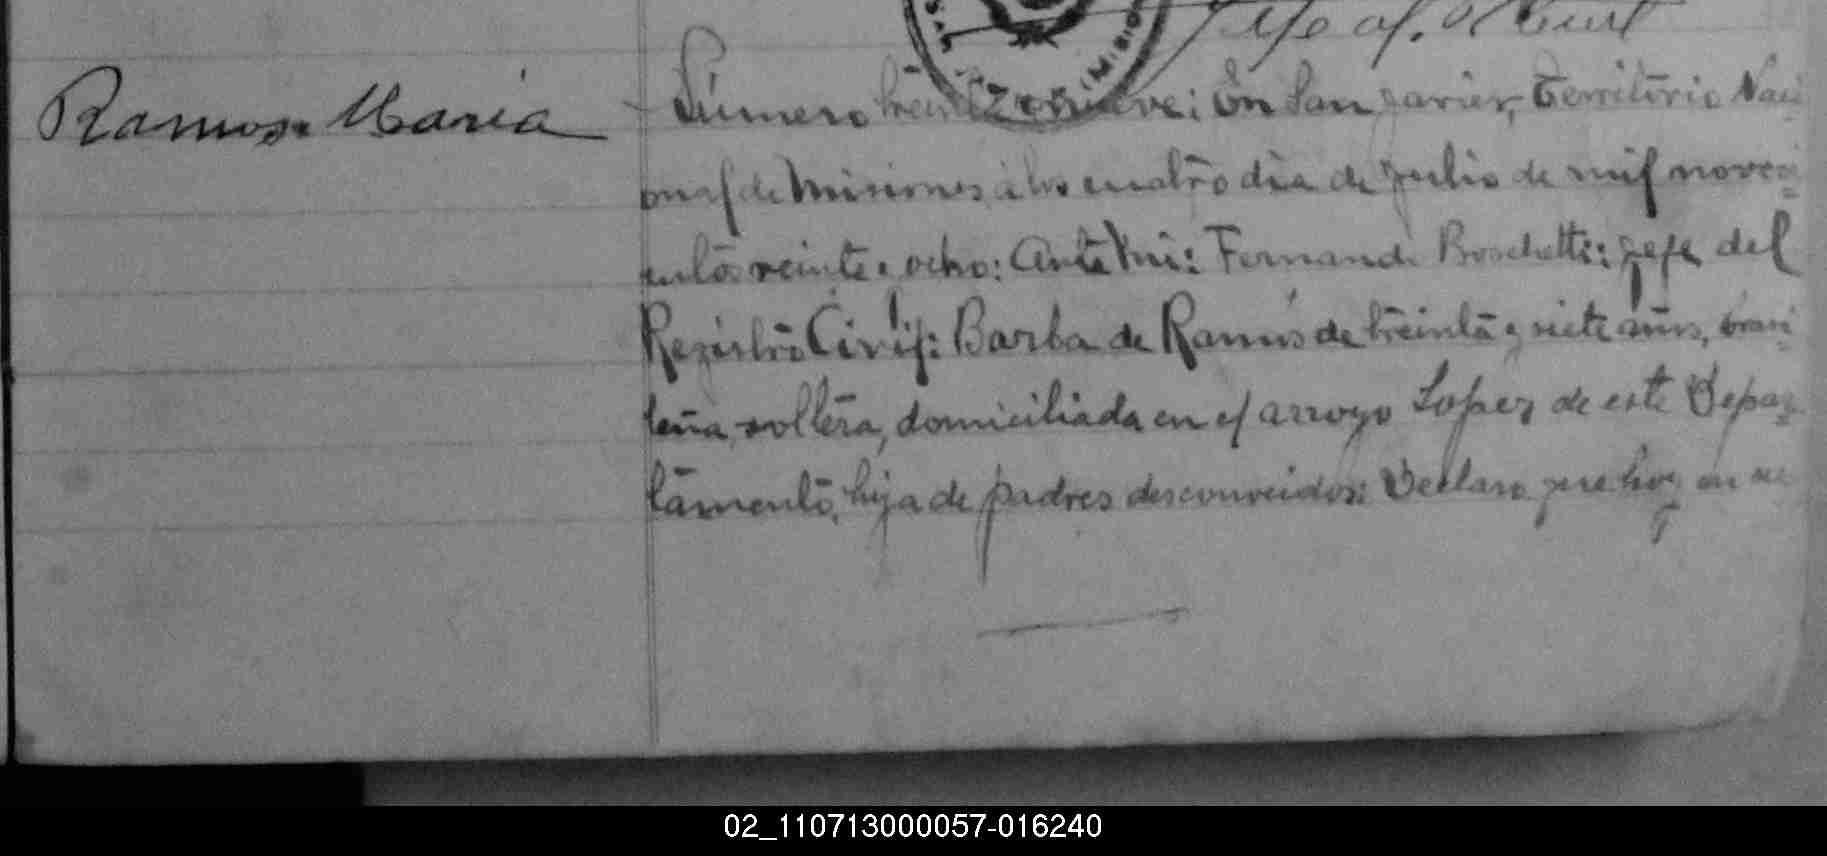 Jefe
Ramos Maria
Número treinta y nueve: En San Javier, Territorio Naci
onal de Misiones á los cuatro dia de Julio de mil noveci
entos veinte y ocho: Ante Mi: Fernando Boschetti: Jefe del
Rezistro Civil: Barba de Ramos de treinta y siete años, brasi
leña, soltera, domiciliada en el arroyo Lopez de este Depar
tamento, hija de padres desconocidos: Declaro que hoy en su
02_110713000057-016240